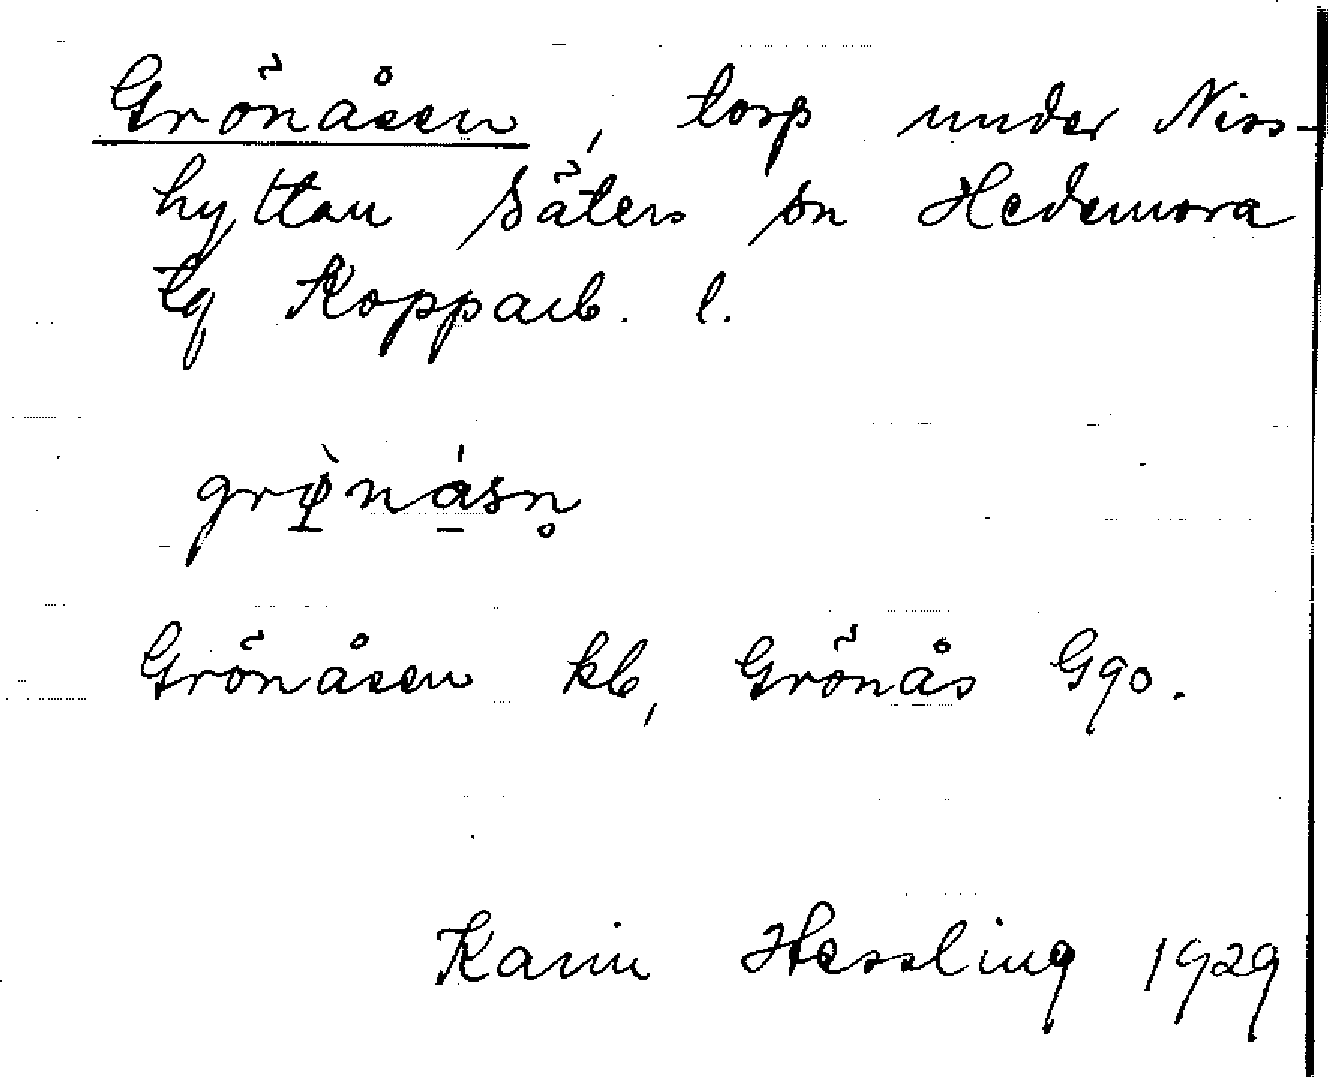 Grönåsen, torp under Niss-
hyttan Säters sn Hedemora
tg Kopparb. l.
grø̀násn̥
Grönåsen kb, Grönås Ggo.
Karin Hessling 1929